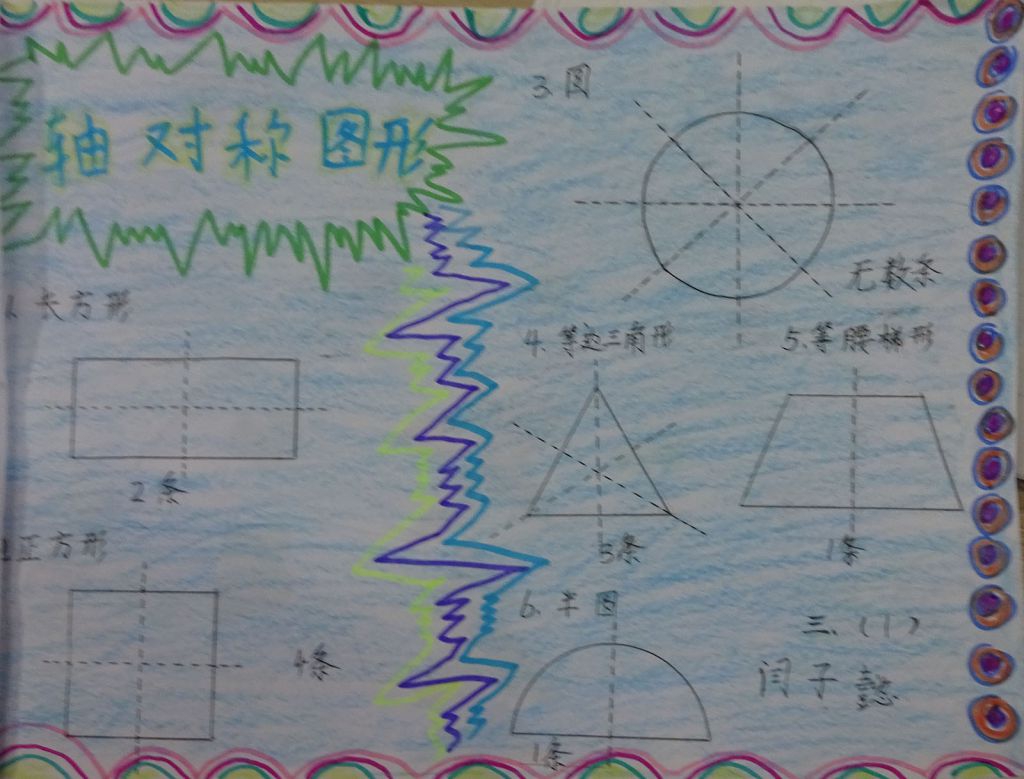 轴对称图形
1、长方形
2条
2、正方形
4条
3、圆
无数条
4、等边三角形
5条
5、等腰梯形
1条
6、半圆
1条
三、(1)
闫子懿